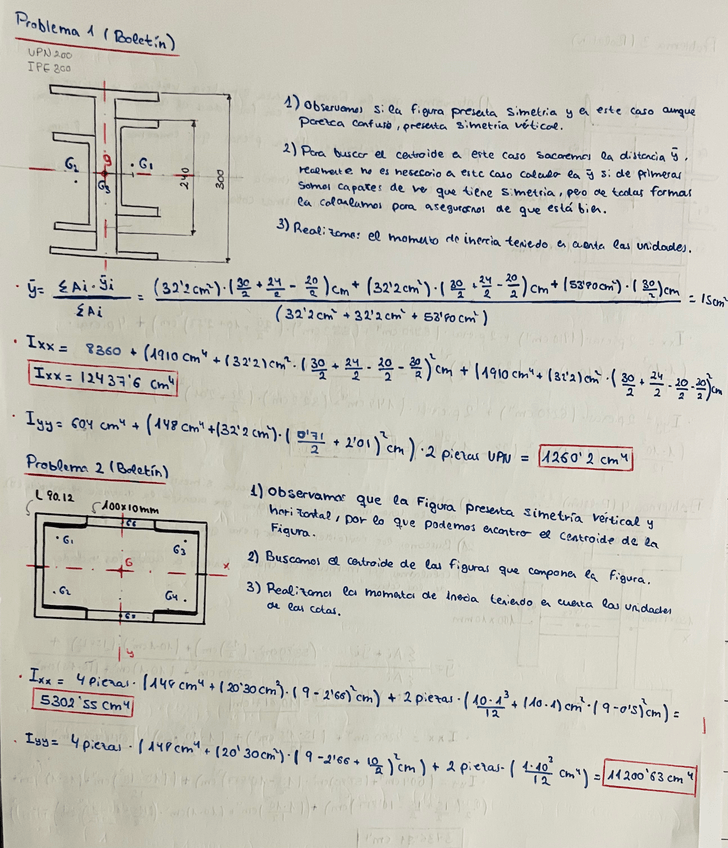 Problema 1 (Boletín)
UPN 200
IPE 300
G2
g
G1
G3
240
300
1) Observamos si la figura presenta simetria y en este caso aunque
parezca confuso, presenta simetria vértical.
2) Para buscar el centroide en este caso sacaremos la distancia ȳ,
realmente no es nesecario en este caso calcular la ȳ si de primeras
somos capazes de ver que tiene simetria, pero de todas formas
la calculamos para asegurarnos de que está bien.
3) Realizamos el momento de inercia teniendo en cuenta las unidades.
· ȳ = ΣAi·ȳi / ΣAi = (32'2cm²)·(30/2 + 24/2 - 20/2)cm + (32'2cm²)·(30/2 + 24/2 - 20/2)cm + (53'90cm²)·(30/2)cm / (32'2cm² + 32'2cm² + 53'90cm²) = 15cm
· Ixx = 8360 + (1910cm⁴ + (32'2)cm²·(30/2 + 24/2 - 20/2 - 30/2)²cm + (1910cm⁴ + (32'2)cm²·(30/2 + 24/2 - 20/2 - 30/2)²cm
Ixx = 12437'6 cm⁴
· Iyy = 604 cm⁴ + (148cm⁴ + (32'2cm²)·(0'71/2 + 2'01)²cm)·2 piezas UPN = 1260'2 cm⁴
Problema 2 (Boletín)
L 90.12
100x10mm
G5
G1
G3
G
x
G2
G4
G6
y
1) Observamos que la Figura presenta simetría vértical y
horizontal, por lo que podemos encontrar el centroide de la
Figura.
2) Buscamos el centroide de las figuras que componen la figura.
3) Realizamos los momentos de inercia teniendo en cuenta las unidades
de las cotas.
· Ixx = 4 piezas·(148cm⁴ + (20'30cm²)·(9-2'66)²cm) + 2 piezas·(10·1³/12 + (10·1)cm²·(9-0'5)²cm) =
5302'55 cm⁴
· Iyy = 4 piezas·(148cm⁴ + (20'30cm²)·(9-2'66 + 10/2)²cm) + 2 piezas·(1·10³/12 cm⁴) = 11200'63 cm⁴